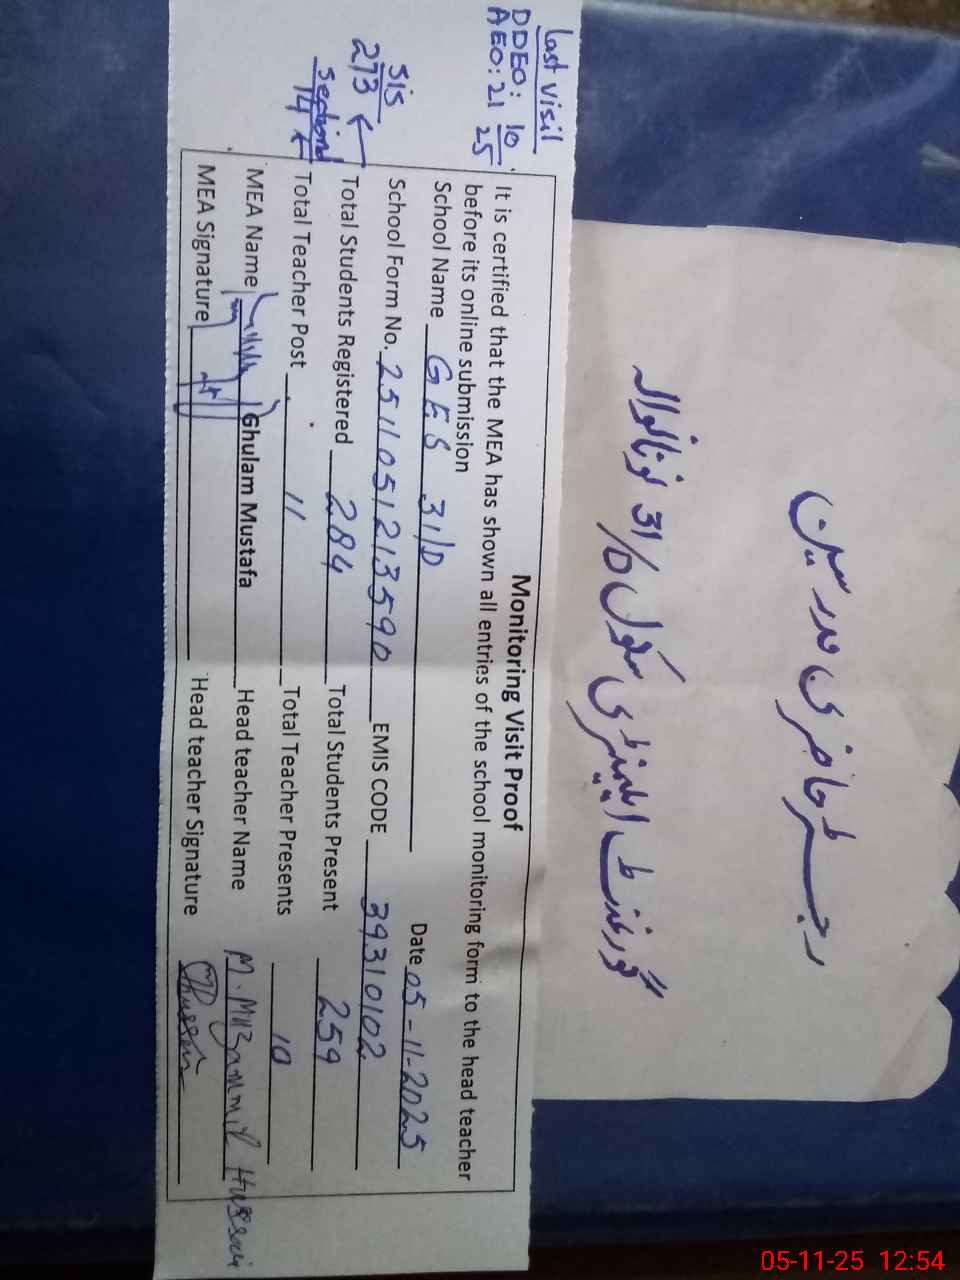 رجسٹر حاضری مدرسین
گورنمنٹ ایلیمنٹری سکول 31/D نونانوالہ
Last visit
DDEO: 10
AEO: 21 25
Monitoring Visit Proof
It is certified that the MEA has shown all entries of the school monitoring form to the head teacher
before its online submission
School Name GES 31/D Date 05-11-2025
School Form No. 2511051213590 EMIS CODE 39310102
SIS
273 ← Total Students Registered 284 Total Students Present 259
Section
14 ← Total Teacher Post 11 Total Teacher Presents 10
MEA Name Ghulam Mustafa Head teacher Name M. Muzammil Hussain
MEA Signature Head teacher Signature
05-11-25 12:54